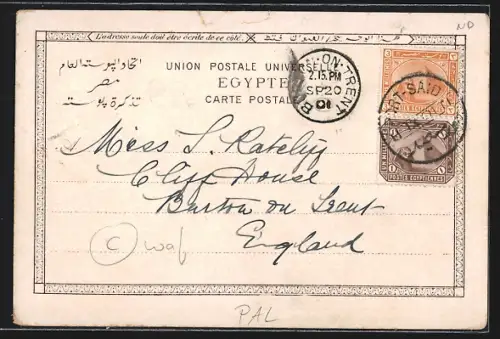 ND
L'adresse seule doit être écrite de ce côté.
UNION POSTALE UNIVERSELLE
EGYPTE
CARTE POSTALE
اتحاد البوستة العام
مصر
تذكرة بوستة
ON-TRENT
2.15.PM
SP20
01
PORT-SAID
POSTES EGYPTIENNES
Miss S. Ratcliff
Cliff House
Burton on Trent
England
C waf
PAL